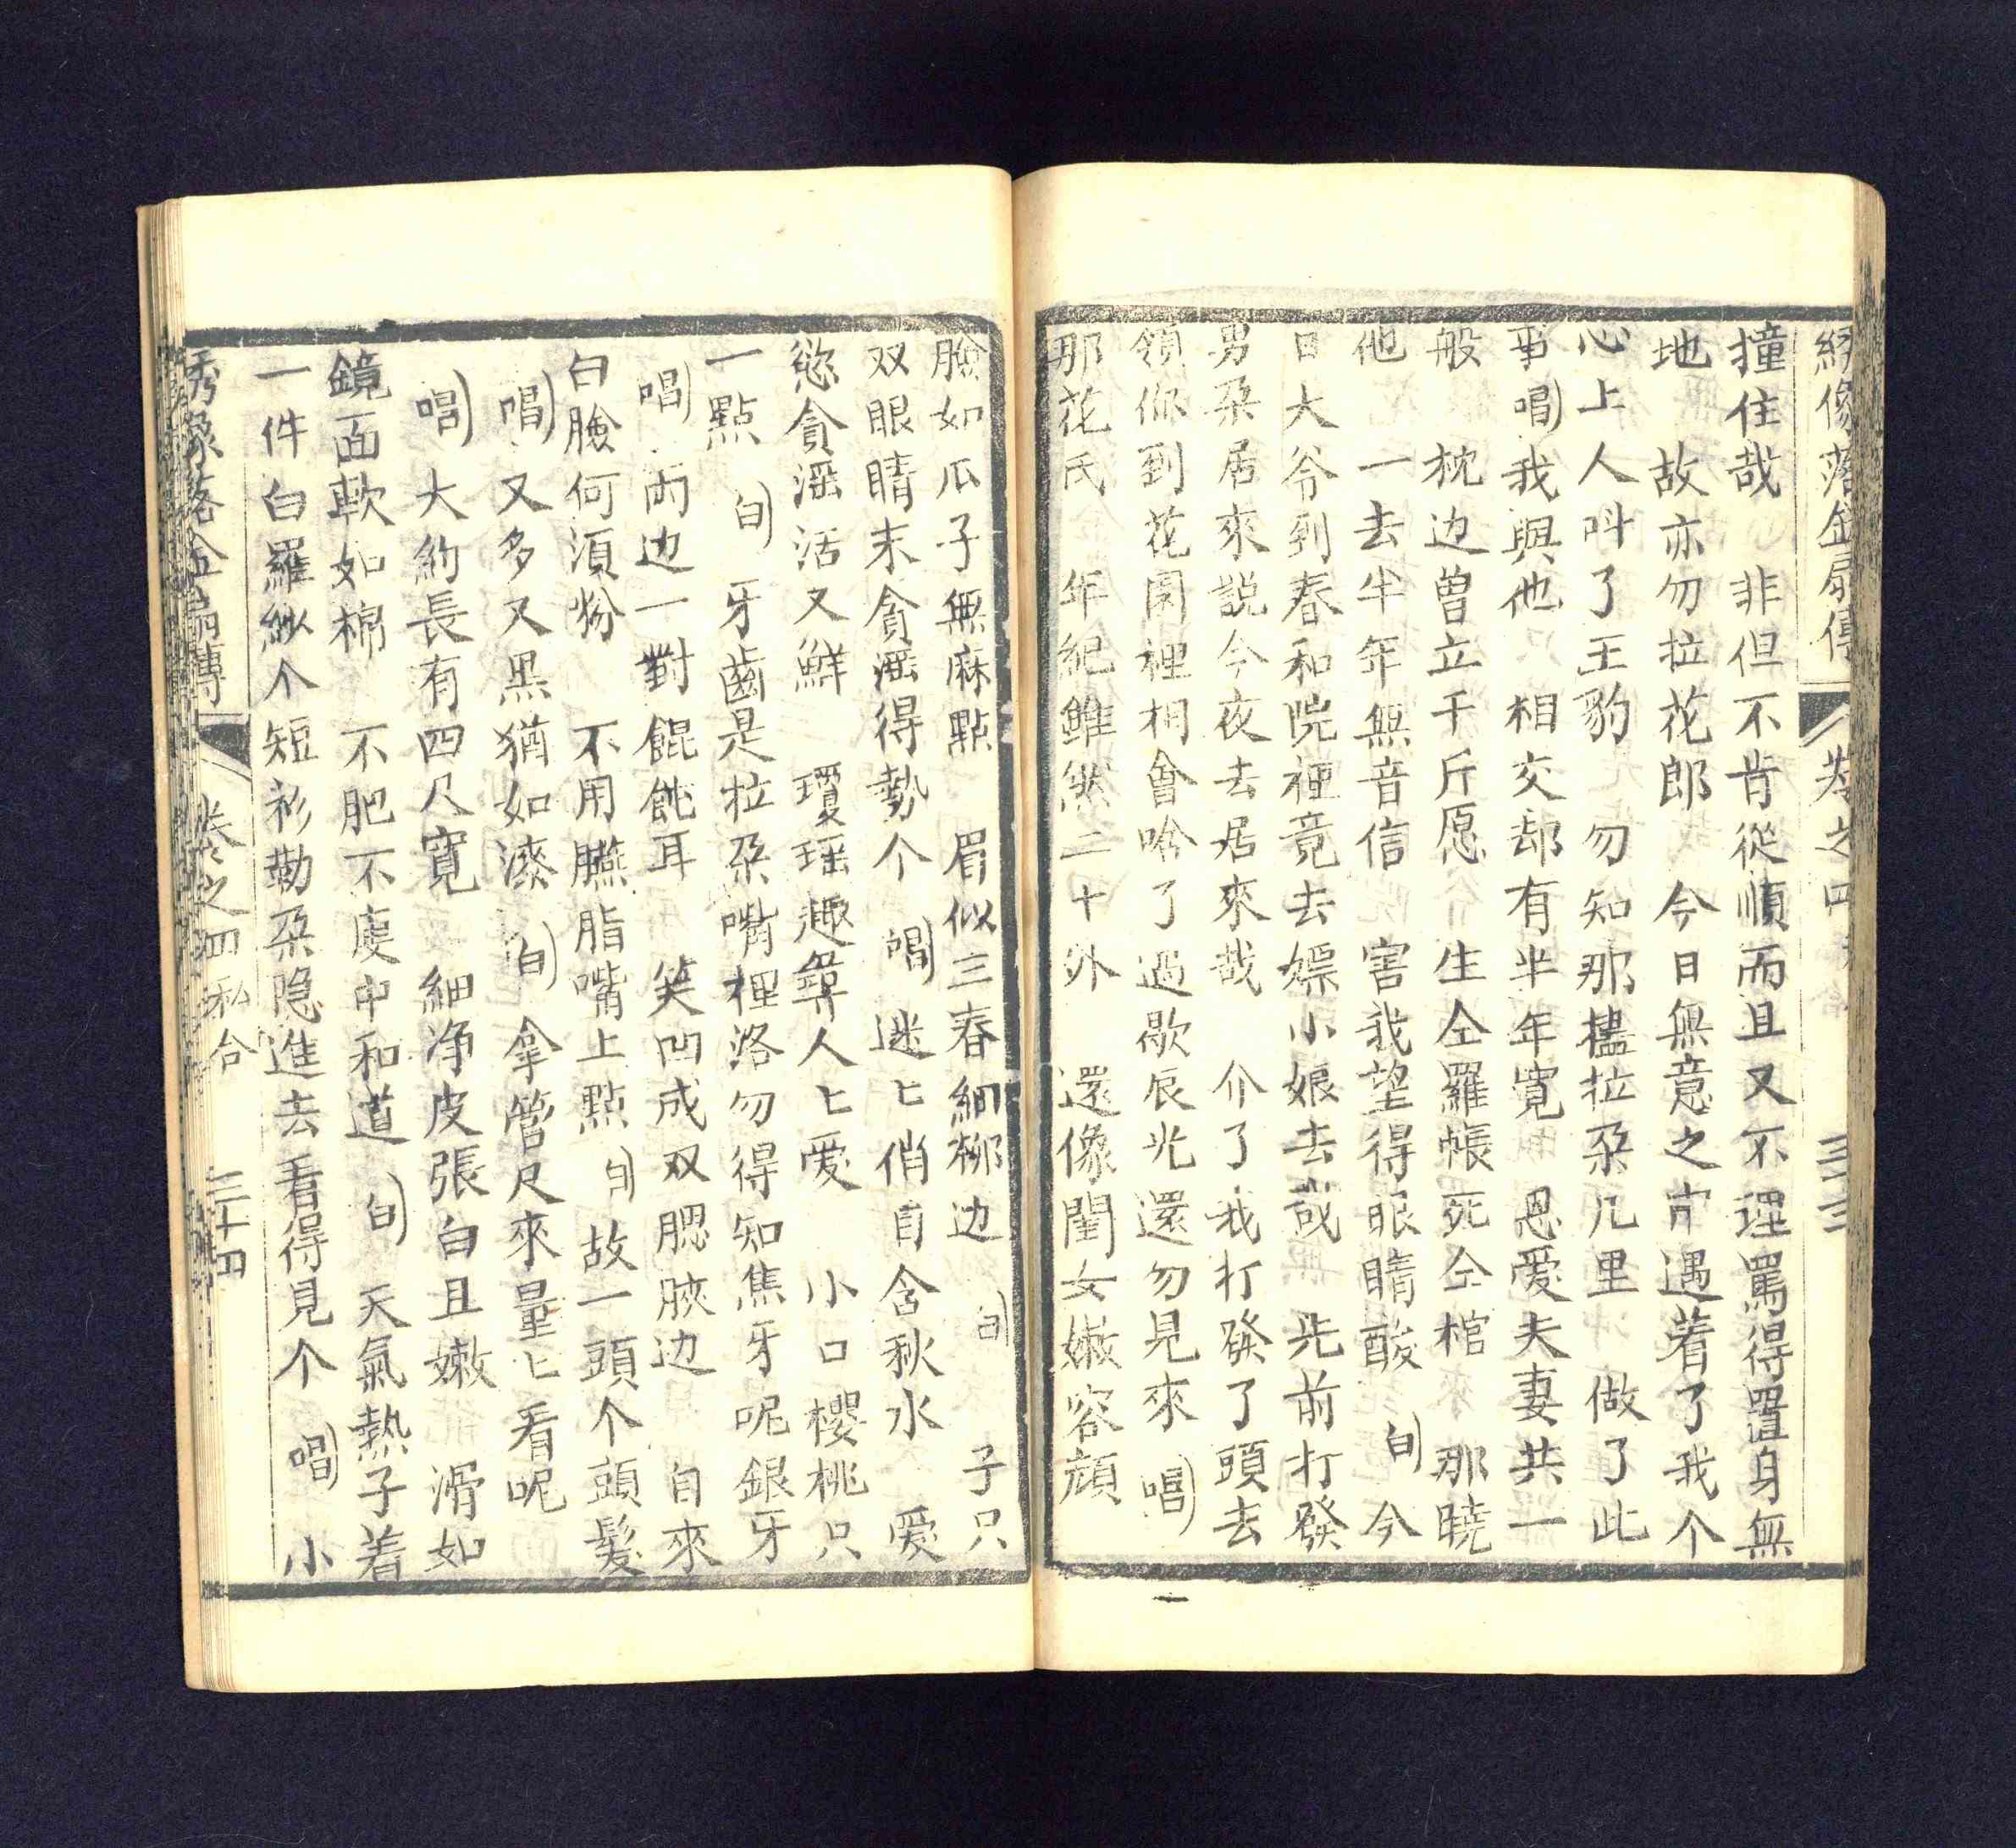 繡像落金扇傳 卷之四 三三
撞住哉 非但不肯從順而且又不理罵得置身無
地 故亦勿拉花郎 今日無意之中遇着了我个
心上人呌了王豹 勿知那𣛮拉朶几里 做了此
事唱我與他 相交却有半年寬 恩愛夫妻共一
般 枕边曾立千斤愿 生仝羅帳死仝棺 那曉
他 一去半年無音信 害我望得眼睛酸 白 今
日大爷到春和院裡竟去嫖小娘去哉 先前打發
男朶居來說今夜去居來哉 介了我打發了頭去
領你到花園裡相會啥了過歇辰光還勿見來 唱
那花氏 年紀雖然二十外 還像閨女嫩容顔
臉如瓜子無麻點 眉似三春細柳边 白 子只
双眼睛末貪滛得勢个 唱 迷匕俏目含秋水 愛
慾貪滛活又鮮 瓊瑶趣鼻人匕愛 小口櫻桃只
一點 白 牙齒是拉朶嘴裡洛勿得知焦牙呢銀牙
唱 兩边一對餛飩耳 笑凹成双腮脥边 自來
白臉何須粉 不用臙脂嘴上點 白 故一頭个頭髮
唱 又多又黒猶如漆 白 拿管尺來量匕看呢
唱 大約長有四尺寬 細净皮張白且嫩 滑如
鏡面軟如棉 不肥不瘦中和道 白 天氣熱子着
一件白羅紗个短衫勒朶隐進去看得見个 唱 小
綉像落金扇傳 卷之四 私合 三十四